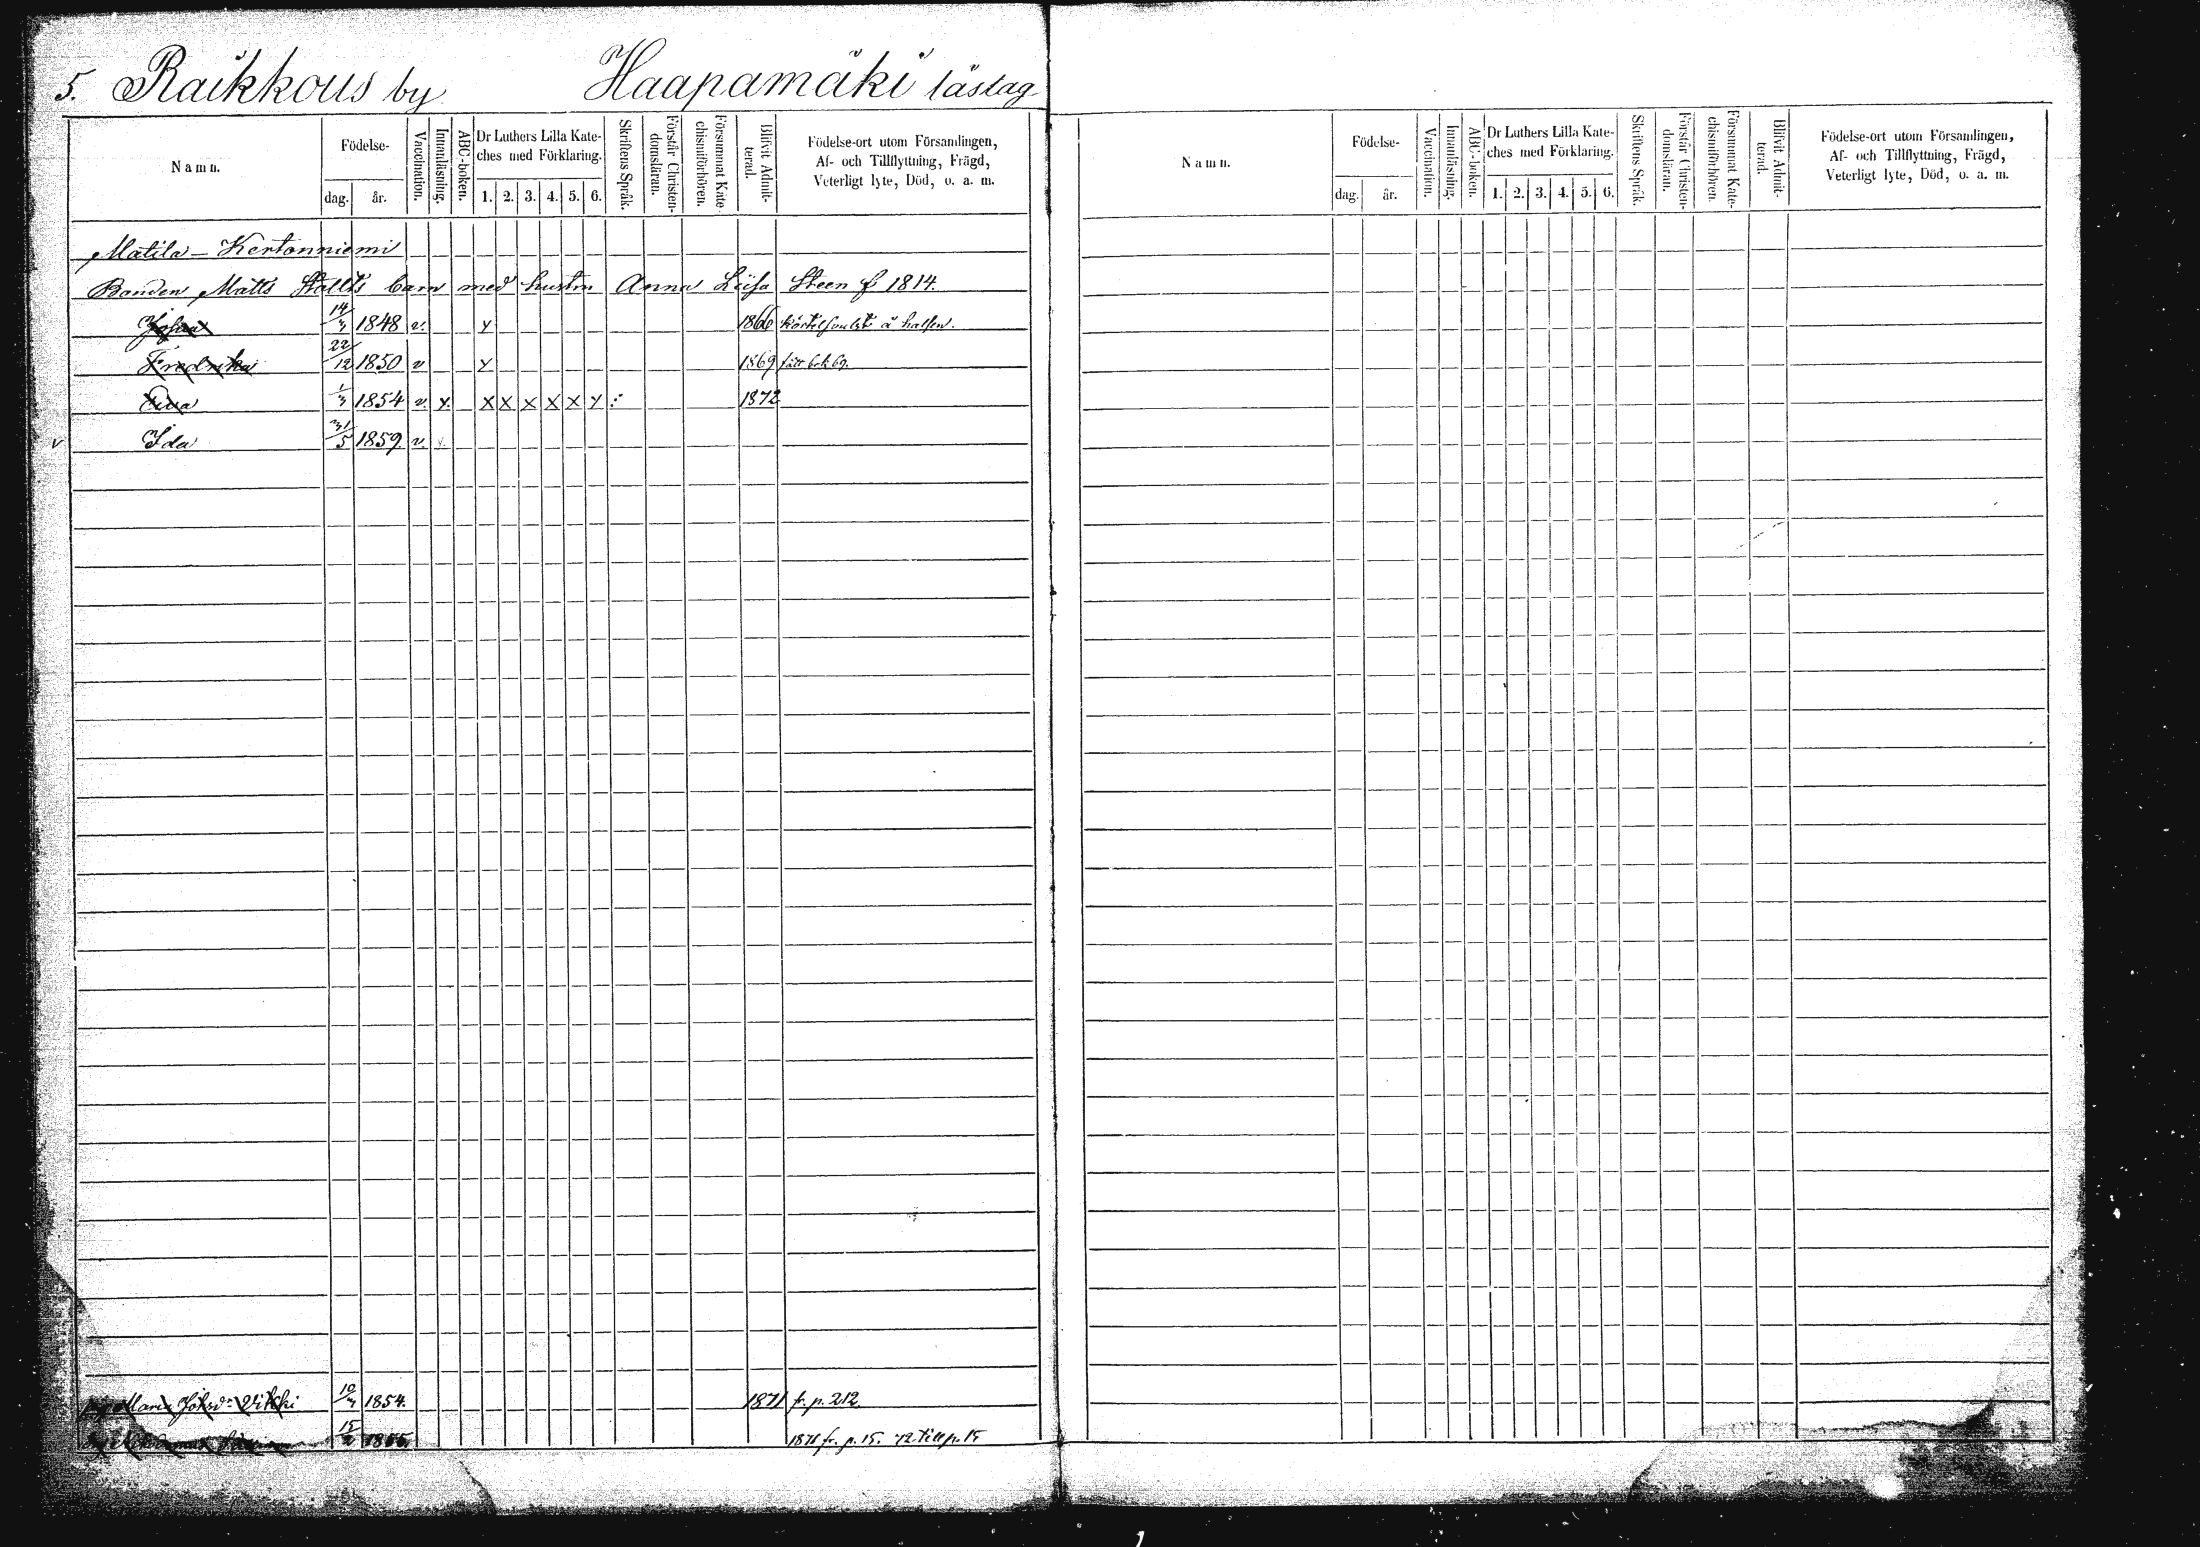 5. Raikkous by Haapamäki läslag
Namn. Födelse- dag. år. Vaccination. Innanläsning. ABC-boken. Dr Luthers Lilla Kateches med Förklaring. 1. 2. 3. 4. 5. 6. Skriftens Språk. Förstår Christendomsläran. Försummat Katechismiförhören. Blifvit Admitterad. Födelse-ort utom Församlingen, Af- och Tillflyttning, Frägd, Veterligt lyte, Död, o. a. m.
Matila - Kertonniemi
Bonden Matts Ståills barn med hustru Anna Liisa Steen f 1814.
14/3 1848 v. x 1866 körtelsvulst å halsen.
Fredrika 22/12 1850 v x 1869 fått bet. 69.
Eva 1/3 1854 v. x x x x x x x 1872
v Ida 31/5 1859. v.
Maria 10/3 1854. 1871 fr. p. 212
15/2 1855 1871 fr. p. 15. 72 till p. 15
Namn. Födelse- dag. år. Vaccination. Innanläsning. ABC-boken. Dr Luthers Lilla Kateches med Förklaring. 1. 2. 3. 4. 5. 6. Skriftens Språk. Förstår Christendomsläran. Försummat Katechismiförhören. Blifvit Admitterad. Födelse-ort utom Församlingen, Af- och Tillflyttning, Frägd, Veterligt lyte, Död, o. a. m.